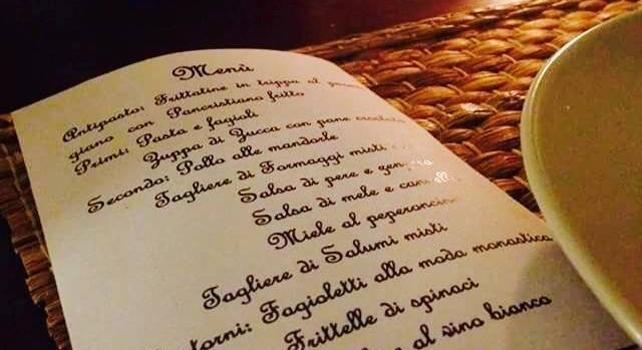 Menù
Antipasto: Frittatine in trippa al
giano con Pancristiano fritto
Primi: Pasta e fagioli
Zuppa di Zucca con pane
Secondo: Pollo alle mandorle
Tagliere di Formaggi misti
Salsa di pere e
Salsa di mele e
Miele al peperoncino
Tagliere di Salumi misti
Fagioletti alla moda monastica
Frittelle di spinaci
al vino bianco